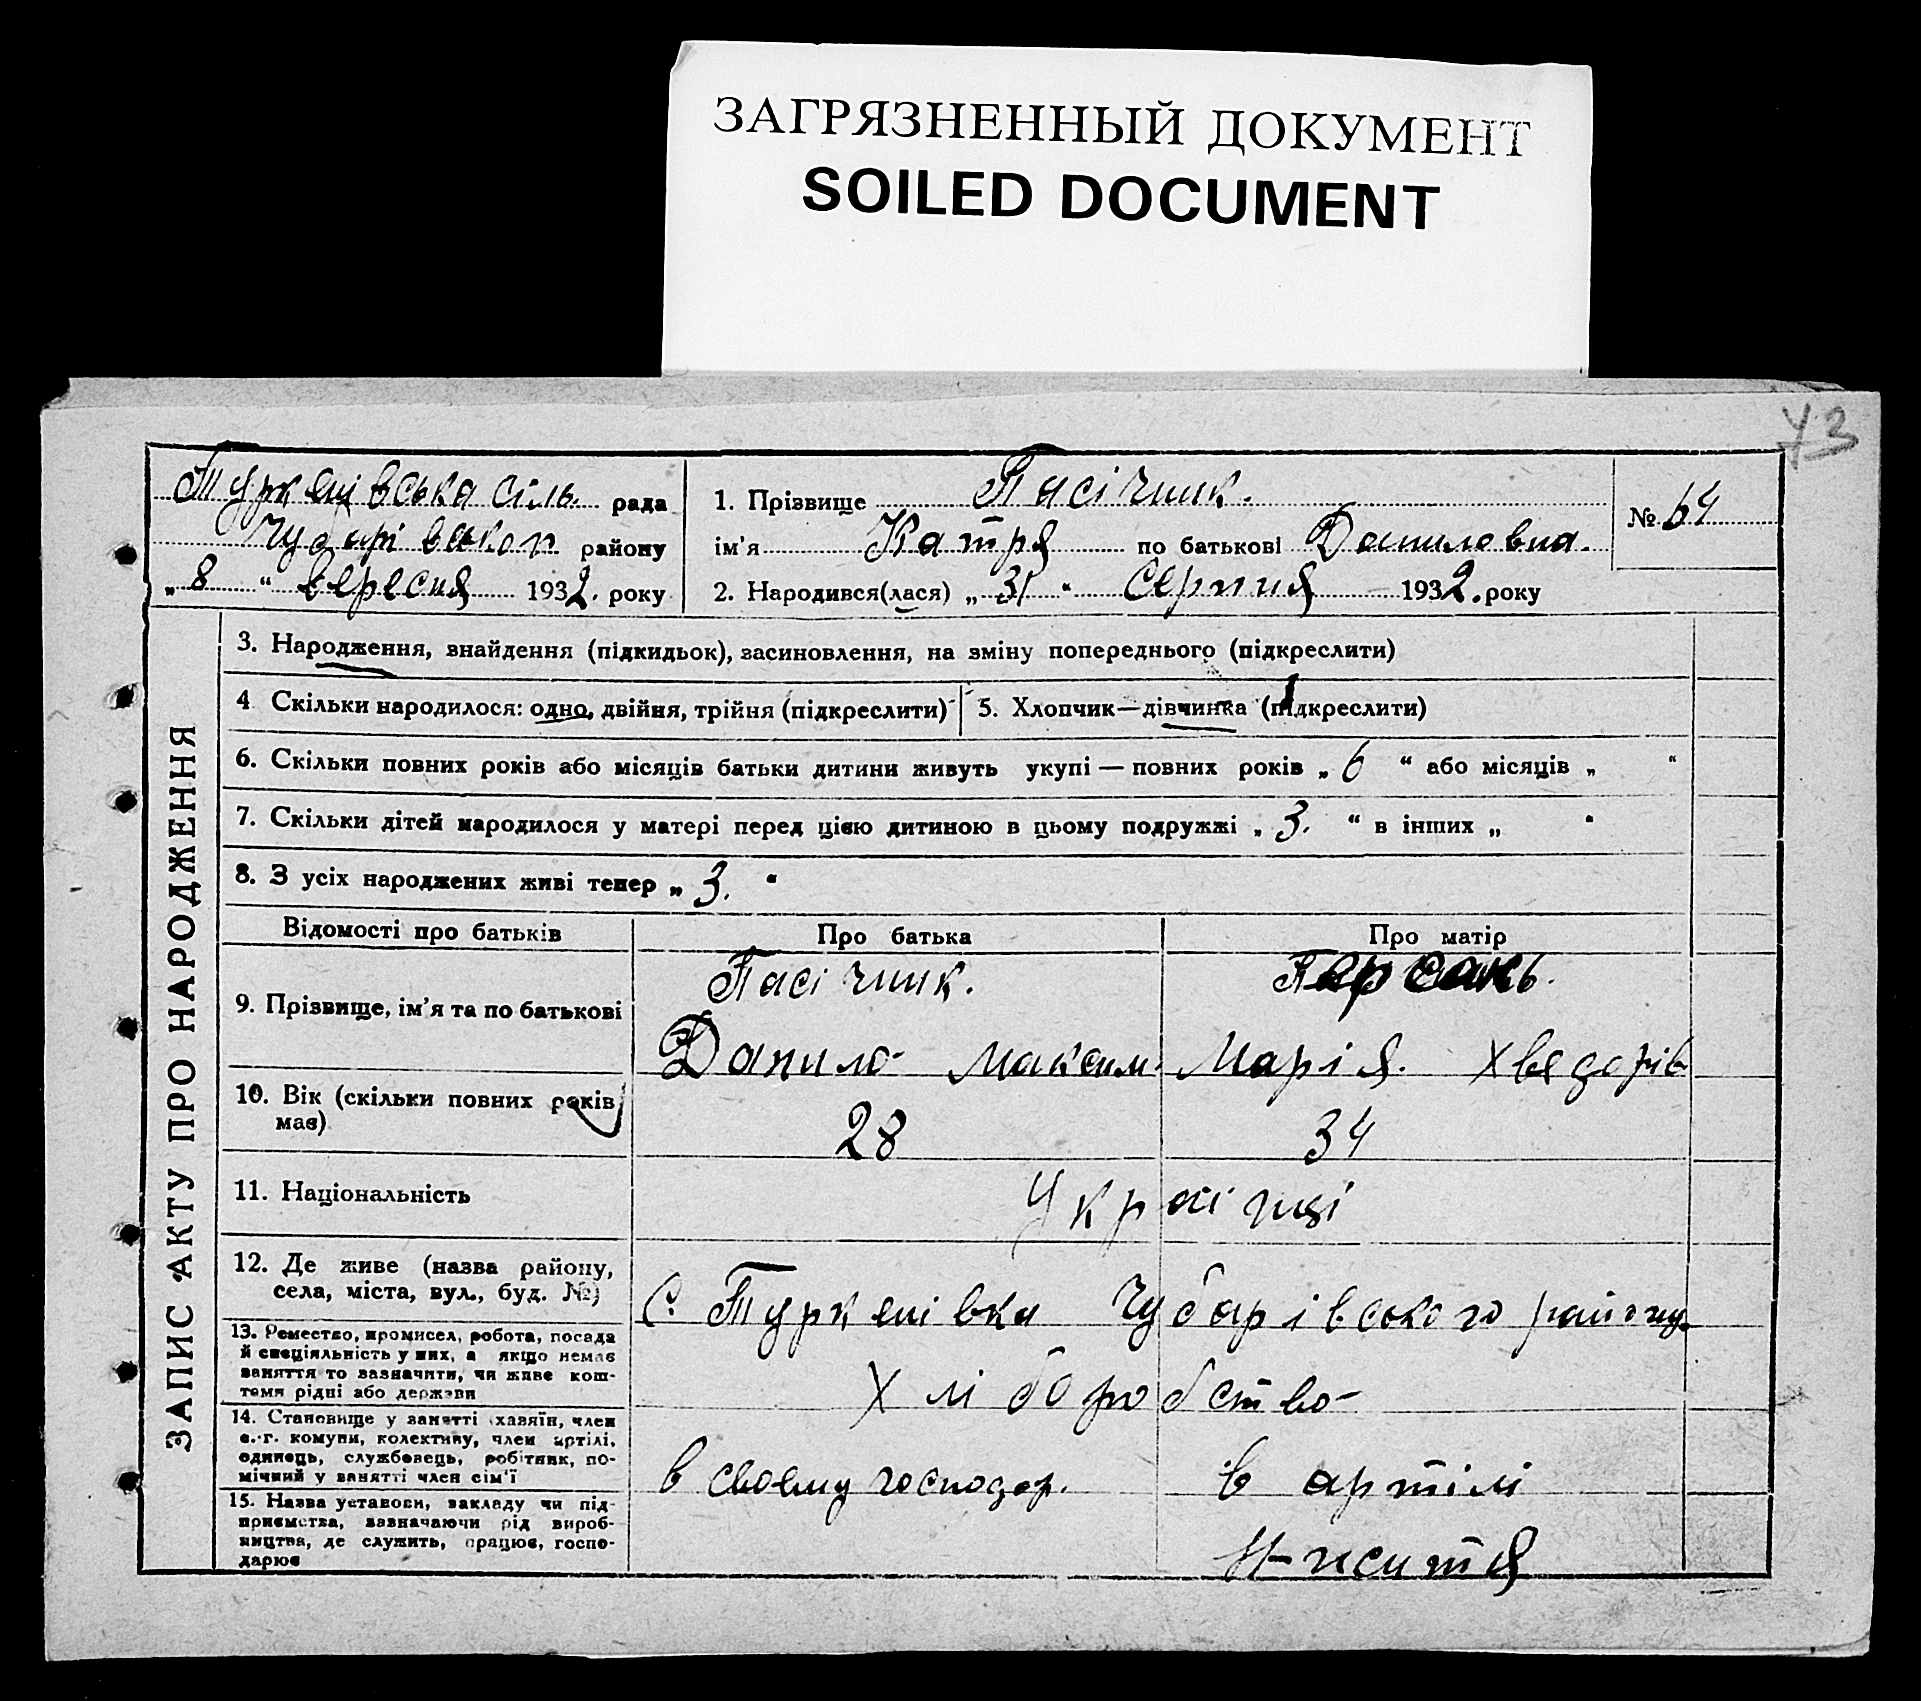 ЗАГРЯЗНЕННЫЙ ДОКУМЕНТ
SOILED DOCUMENT
73
Туркенівська сіль. рада
Чубарівськог району
„ 8 “ вересня 1932. року
1. Прізвище Пасічник.
ім'я Катря по батькові Даниловна.
2. Народився(лася) „ 31 “ Серпня 1932. року
№ 64
ЗАПИС АКТУ ПРО НАРОДЖЕННЯ
3. Народження, знайдення (підкидьок), засиновлення, на зміну попереднього (підкреслити)
4 Скільки народилося: одно, двійня, трійня (підкреслити)
5. Хлопчик—дівчинка (підкреслити)
6. Скільки повних років або місяців батьки дитини живуть укупі — повних років „ 6 “ або місяців „ “
7. Скільки дітей народилося у матері перед цією дитиною в цьому подружжі „ 3. “ в інших „ “
8. З усіх народжених живі тепер „ 3. “
Відомості про батьків Про батька Про матір
9. Прізвище, ім'я та по батькові
Пасічник.
Данило Максим.
Марія. Хведорів
10. Вік (скільки повних років має)
28 34
11. Національність
Українці
12. Де живе (назва району,
села, міста, вул., буд. №)
С. Туркенівка Чубарівського району.
13. Ремество, промисел, робота, посада
й спеціяльність у них, а якщо немає
заняття то зазначити, чи живе кош-
тами рідні або держави
Хліборобство
14. Становище у занятті (хазяїн, член
с.-г. комуни, колективу, член артілі,
одинець, службовець, робітник, по-
мічний у занятті член сім'ї
в своєму господар. в артілі
15. Назва установи, закладу чи під-
приємства, зазначаючи рід вироб-
ництва, де служить, працює, госпо-
дарює
Н-життя